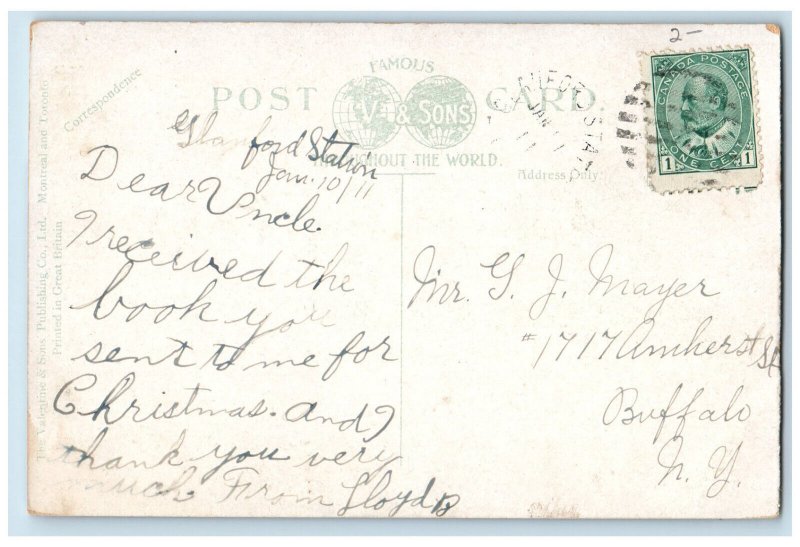 2-
Correspondence
FAMOUS
POST CARD.
V & SONS
THROUGHOUT THE WORLD.
Address Only.
CANADA POSTAGE
1 ONE CENT 1
JAN
The Valentine & Sons Publishing Co., Ltd. Montreal and Toronto
Printed in Great Britain
Stamford Station
Jan. 10/11
Dear Uncle.
I received the
book you
sent to me for
Christmas. and I
thank you very
much. From Lloyd B
Mr. G. J. Mayer
#1717 Amherst St
Buffalo
N. Y.